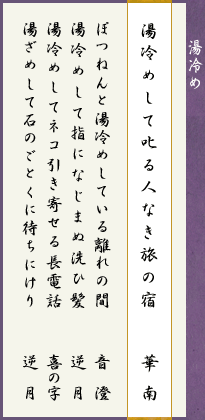 湯冷め
湯冷めして叱る人なき旅の宿　華南
ぽつねんと湯冷めしている離れの間　音澄
湯冷めして指になじまぬ洗ひ髪　逆月
湯冷めしてネコ引き寄せる長電話　喜の字
湯ざめして石のごとくに待ちにけり　逆月